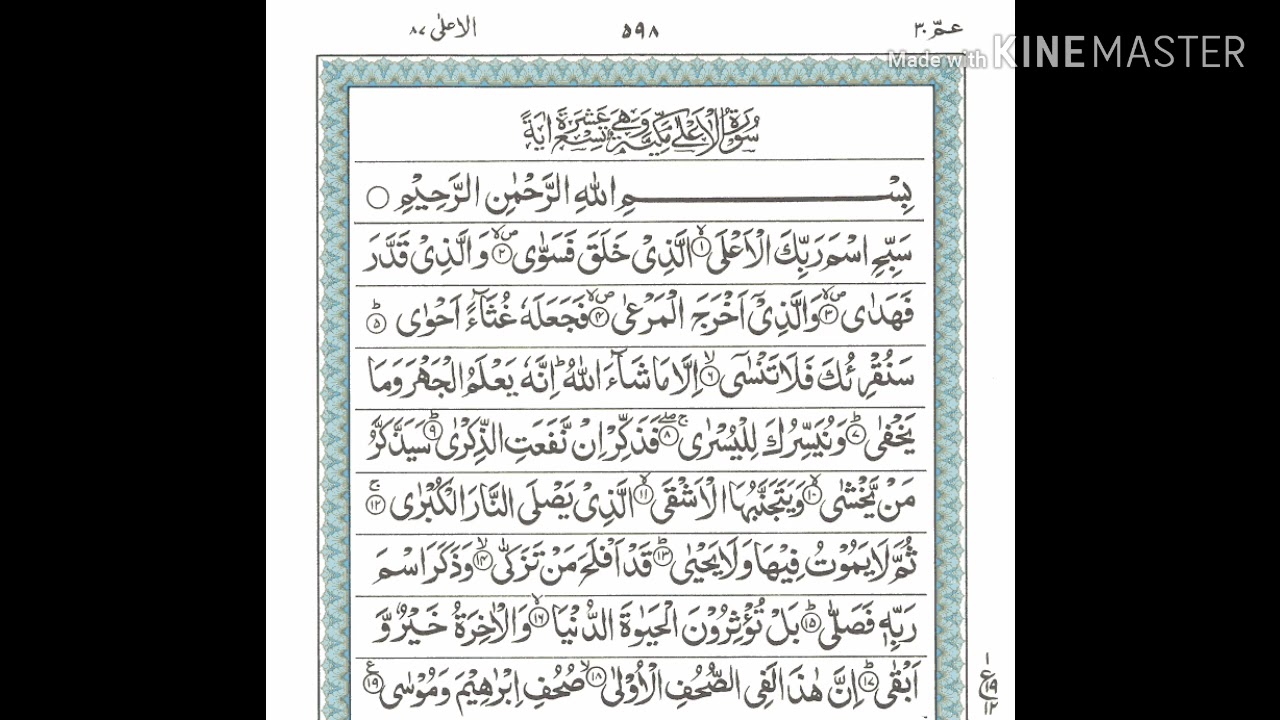 عمّ ٣٠ ٥٩٨ الاعلىٰ ٨٧
Made with KINEMASTER
سُوْرَةُ الْاَعْلٰى مَكِّيَّةٌ وَّهِيَ تِسْعَ عَشْرَةَ اٰيَةً
بِسْمِ اللّٰهِ الرَّحْمٰنِ الرَّحِيْمِ ○
سَبِّحِ اسْمَ رَبِّكَ الْاَعْلَى ۙ﴿١﴾ الَّذِيْ خَلَقَ فَسَوّٰى ۪ۙ﴿٢﴾ وَالَّذِيْ قَدَّرَ
فَهَدٰى ۪ۙ﴿٣﴾ وَالَّذِيْٓ اَخْرَجَ الْمَرْعٰى ۪ۙ﴿٤﴾ فَجَعَلَهٗ غُثَآءً اَحْوٰى ؕ﴿٥﴾
سَنُقْرِئُكَ فَلَا تَنْسٰٓى ۙ﴿٦﴾ اِلَّا مَا شَآءَ اللّٰهُ ؕ اِنَّهٗ يَعْلَمُ الْجَهْرَ وَمَا
يَخْفٰى ؕ﴿٧﴾ وَنُيَسِّرُكَ لِلْيُسْرٰى ۚۖ﴿٨﴾ فَذَكِّرْ اِنْ نَّفَعَتِ الذِّكْرٰى ؕ﴿٩﴾ سَيَذَّكَّرُ
مَنْ يَّخْشٰى ۙ﴿١٠﴾ وَيَتَجَنَّبُهَا الْاَشْقَى ۙ﴿١١﴾ الَّذِيْ يَصْلَى النَّارَ الْكُبْرٰى ۚ﴿١٢﴾
ثُمَّ لَا يَمُوْتُ فِيْهَا وَلَا يَحْيٰى ؕ﴿١٣﴾ قَدْ اَفْلَحَ مَنْ تَزَكّٰى ۙ﴿١٤﴾ وَذَكَرَ اسْمَ
رَبِّهٖ فَصَلّٰى ؕ﴿١٥﴾ بَلْ تُؤْثِرُوْنَ الْحَيٰوةَ الدُّنْيَا ۙ﴿١٦﴾ وَالْاٰخِرَةُ خَيْرٌ وَّ
اَبْقٰى ؕ﴿١٧﴾ اِنَّ هٰذَا لَفِي الصُّحُفِ الْاُوْلٰى ۙ﴿١٨﴾ صُحُفِ اِبْرٰهِيْمَ وَمُوْسٰى ﴿١٩﴾ ع
١ ع ١٩ ١٢